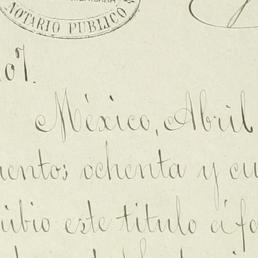 NOTARIO PUBLICO
México, Abril
mentos ochenta y cu
ribio este titulo á fo